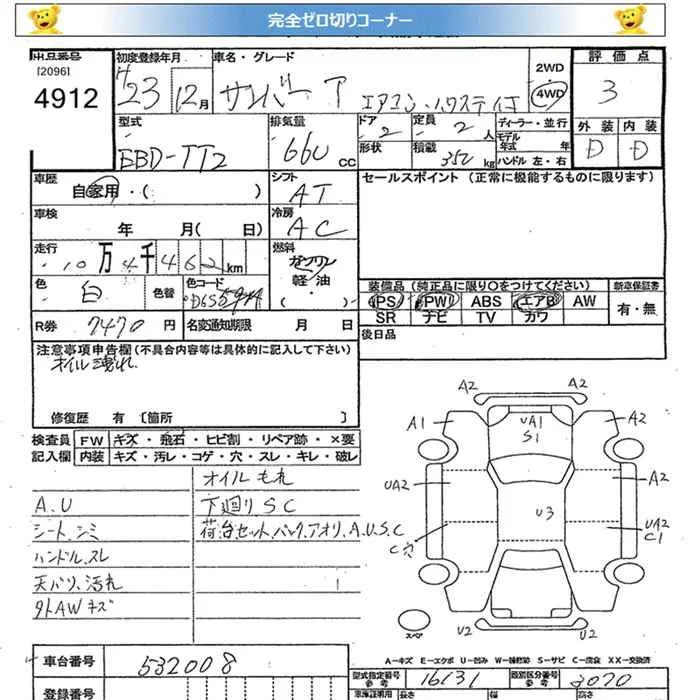 完全ゼロ切りコーナー
出品番号
[2096]
4912
初度登録年月
H23 年 12月
車名・グレード
サンバー ア
エアコン・パワステ付
2WD
4WD
評価点
3
外装 内装
D D
型式
EBD-TT2
排気量
660 cc
ドア 2
形状
定員 2 人
積載 350 kg
ディーラー・並行
モデル年式 年
ハンドル 左・右
車歴
自家用・( )
シフト
AT
セールスポイント (正常に機能するものに限ります)
車検
年 月( 日)
冷房
AC
走行
10万4千462km
燃料
ガソリン
軽油
( )
色
白
色替
色コード
装備品 (純正品に限り○をつけてください)
新車保証書
PS PW ABS エアB AW
有・無
SR ナビ TV カワ
R券 7470 円
名変通知期限 月 日
後日品
注意事項申告欄 (不具合内容等は具体的に記入して下さい)
オイル漏れ
修復歴 有 [箇所 ]
検査員 FW キズ・飛石・ヒビ割・リペア跡・×要
記入欄 内装 キズ・汚レ・コゲ・穴・スレ・キレ・破レ
オイルもれ
A.U 下廻りSC
シート.シミ 荷台セット.バック.アオリ.A.U.S.C
ハンドル.スレ
天バリ.汚れ
外AWキズ
A2 A2
A1 UA1 A2
S1
UA2 A2
U3
C穴 UA2
C1
スペア
U2 U2
A-キズ E-エクボ U-凹み W-補修跡 S-サビ C-腐食 XX-交換済
車台番号 532008
型式指定番号 参考 16131
類別区分番号 参考 3020
登録番号
車庫証明用 長さ 幅 高さ